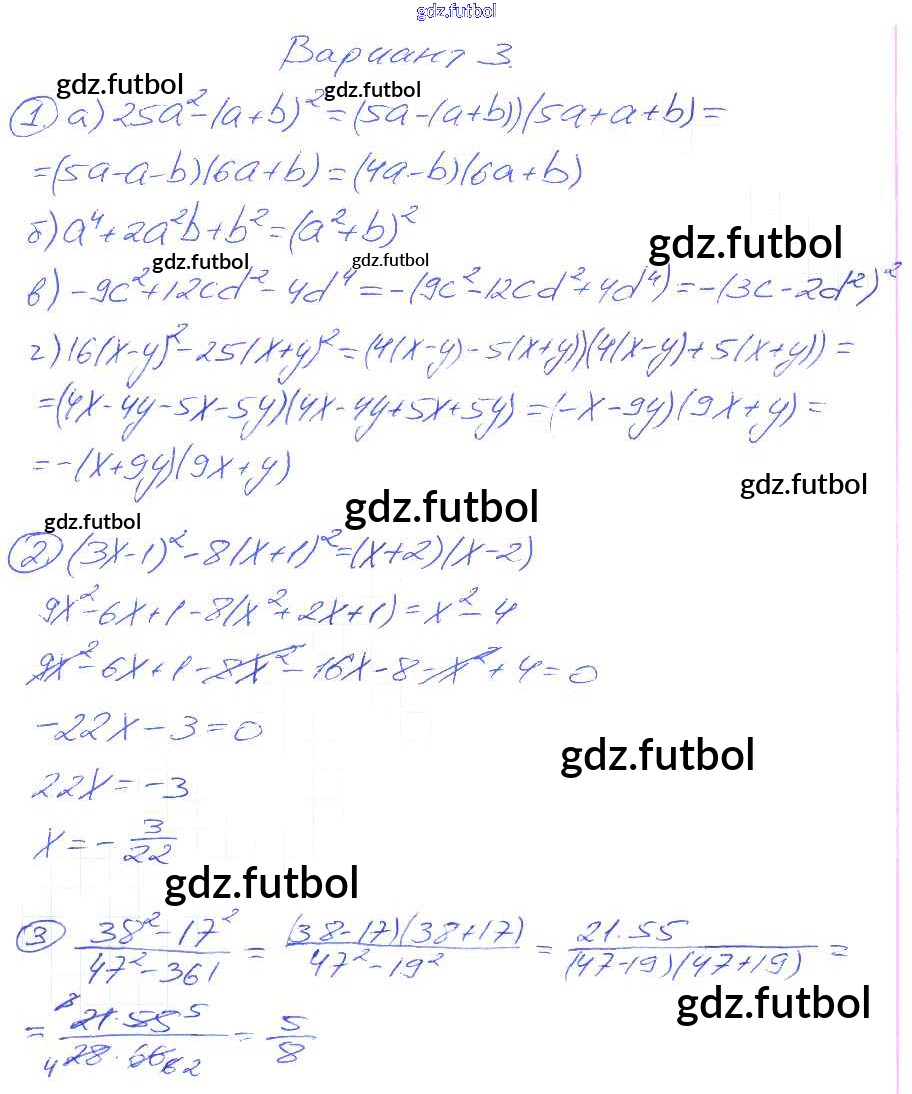 gdz.futbol
Вариант 3.
gdz.futbol gdz.futbol
1. а) 25a² - (a+b)² = (5a-(a+b))(5a+a+b) =
= (5a-a-b)(6a+b) = (4a-b)(6a+b)
б) a⁴ + 2a²b + b² = (a²+b)²
gdz.futbol
gdz.futbol gdz.futbol
в) -9c² + 12cd² - 4d⁴ = -(9c² - 12cd² + 4d⁴) = -(3c - 2d²)²
г) 16(x-y)² - 25(x+y)² = (4(x-y) - 5(x+y))(4(x-y) + 5(x+y)) =
= (4x-4y-5x-5y)(4x-4y+5x+5y) = (-x-9y)(9x+y) =
= -(x+9y)(9x+y)
gdz.futbol
gdz.futbol
gdz.futbol
2. (3x-1)² - 8(x+1)² = (x+2)(x-2)
9x² - 6x + 1 - 8(x² + 2x + 1) = x² - 4
9x² - 6x + 1 - 8x² - 16x - 8 - x² + 4 = 0
-22x - 3 = 0
gdz.futbol
22x = -3
x = - 3/22
gdz.futbol
3 (38² - 17²)/(47² - 361) = ((38-17)(38+17))/(47² - 19²) = (21·55)/((47-19)(47+19)) =
gdz.futbol
= (³21·55⁵)/(₄28·66₆₂) = 5/8